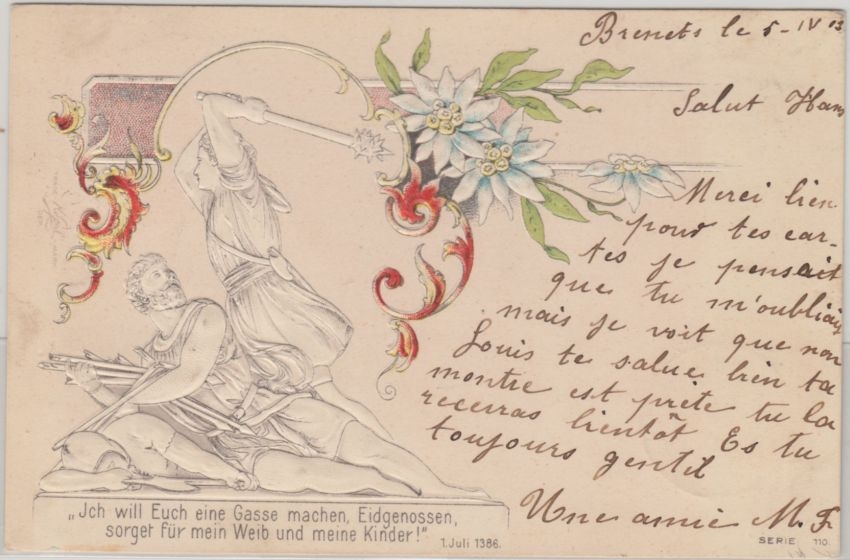 Brenets le 5-IV 03
Salut Hans
Merci bien
pour tes car-
tes je pensait
que tu m'oubliais
mais je voit que non
Louis te salue bien ta
montre est prète tu la
receras bientôt Es tu
toujours gentil
Une amie M. F.
„Jch will Euch eine Gasse machen, Eidgenossen,
sorget für mein Weib und meine Kinder!"
1. Juli 1386.
SERIE 110.